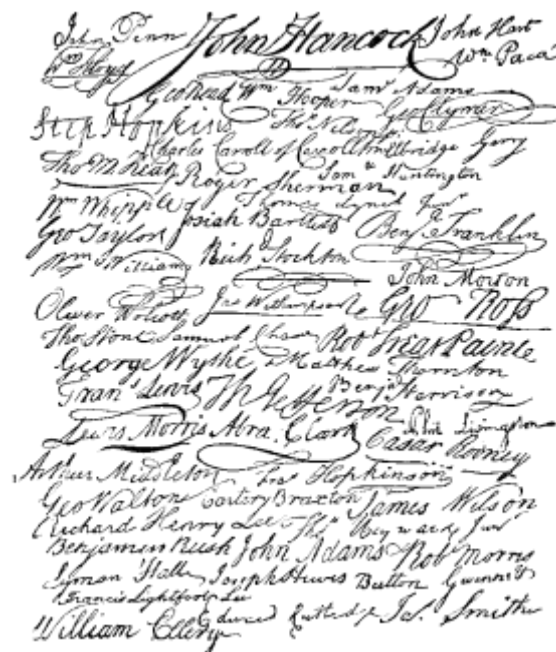 John Penn John Hancock John Hart
Wm Floyd Wm Paca
Geo Read Wm Hooper Saml Adams
Step Hopkins Thos Nelson jr. Geo Clymer
Charles Carroll of Carrollton Elbridge Gerry
Tho M:Kean Roger Sherman Saml Huntington
Wm Whipple Thomas Lynch Junr
Geo Taylor Josiah Bartlett Benj Franklin
Wm Williams Richd Stockton
John Morton
Oliver Wolcott Jno Witherspoon Geo Ross
Thos Stone Samuel Chase Robt Treat Paine
George Wythe Matthew Thornton
Frans Lewis Th Jefferson Benj Harrison
Lewis Morris Abra Clark Phil Livingston
Casar Rodney
Arthur Middleton Fras Hopkinson
Geo Walton Carter Braxton James Wilson
Richard Henry Lee Thos Heyward Junr
Benjamin Rush John Adams Robt Morris
Lyman Hall Joseph Hewes Button Gwinnett
Francis Lightfoot Lee
William Ellery Edward Rutledge Jas Smith